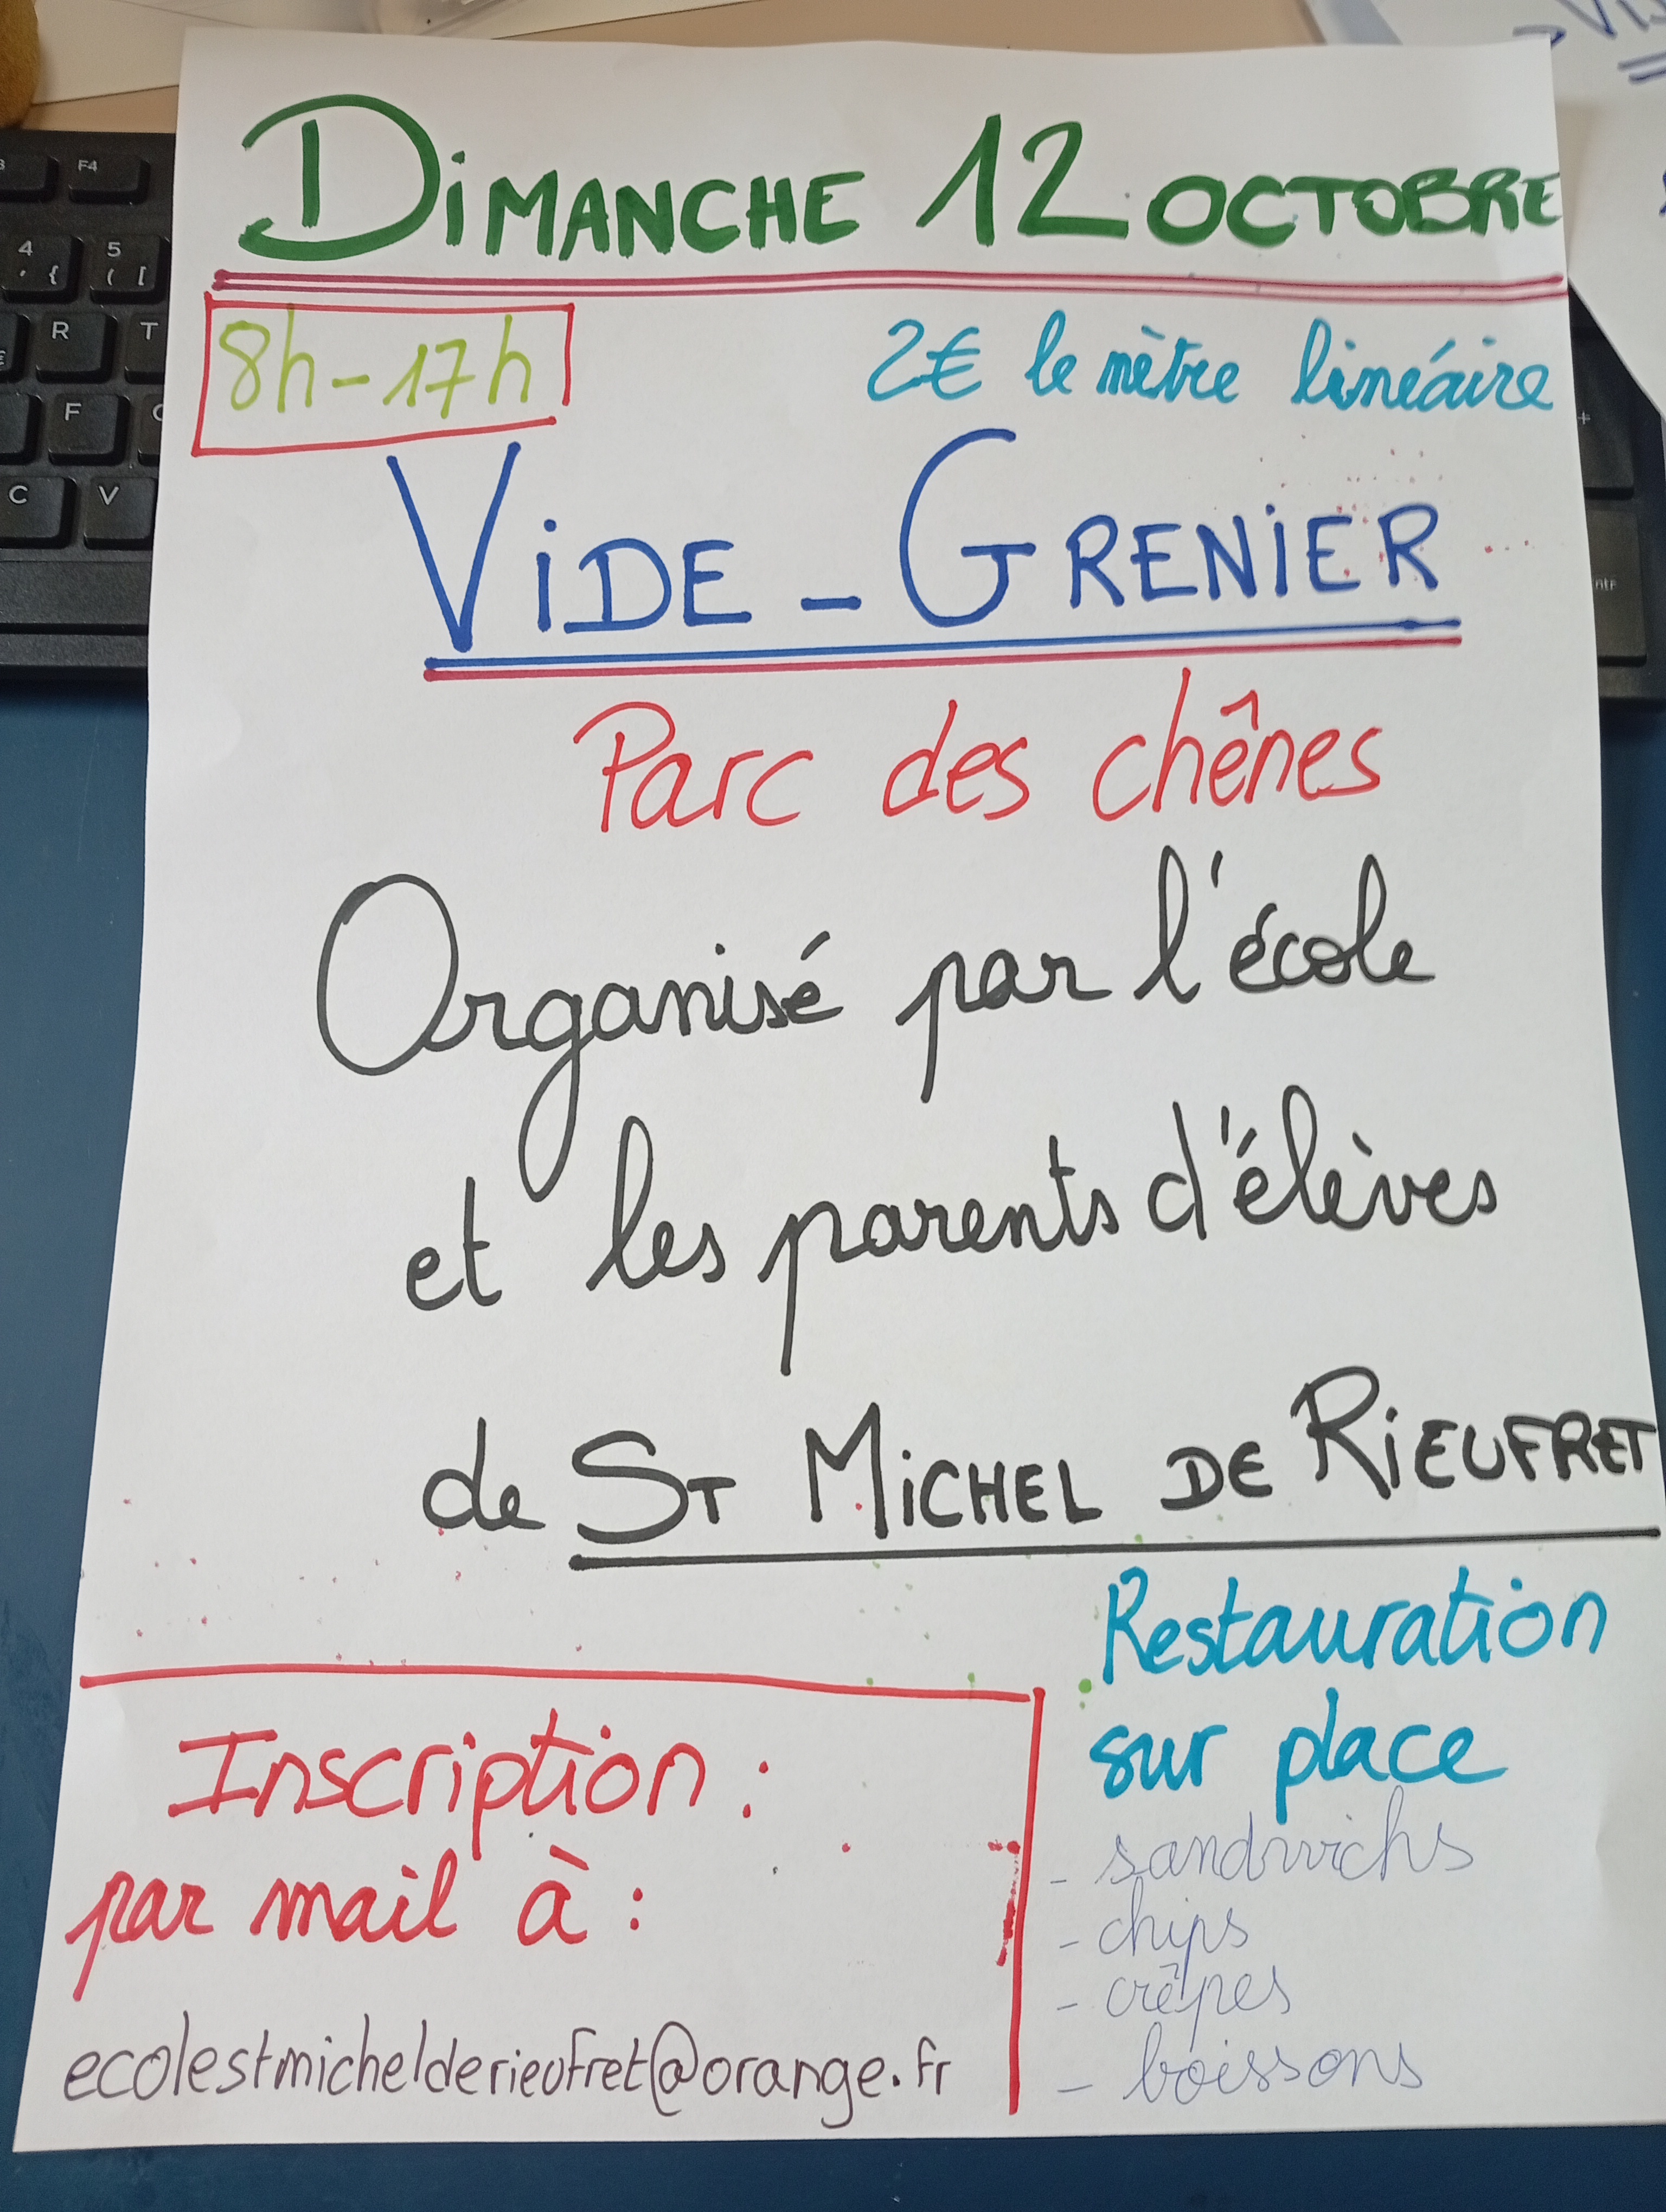 DIMANCHE 12 OCTOBRE
8h-17h
2€ le mètre linéaire
VIDE-GRENIER
Parc des chênes
Organisé par l'école
et les parents d'élèves
de ST MICHEL DE RIEUFRET
Restauration
sur place
- sandwichs
- chips
- crêpes
- boissons
Inscription :
par mail à :
ecolestmichelderieufret@orange.fr
F4
4 ' {
5 ( [
R T
F
C V